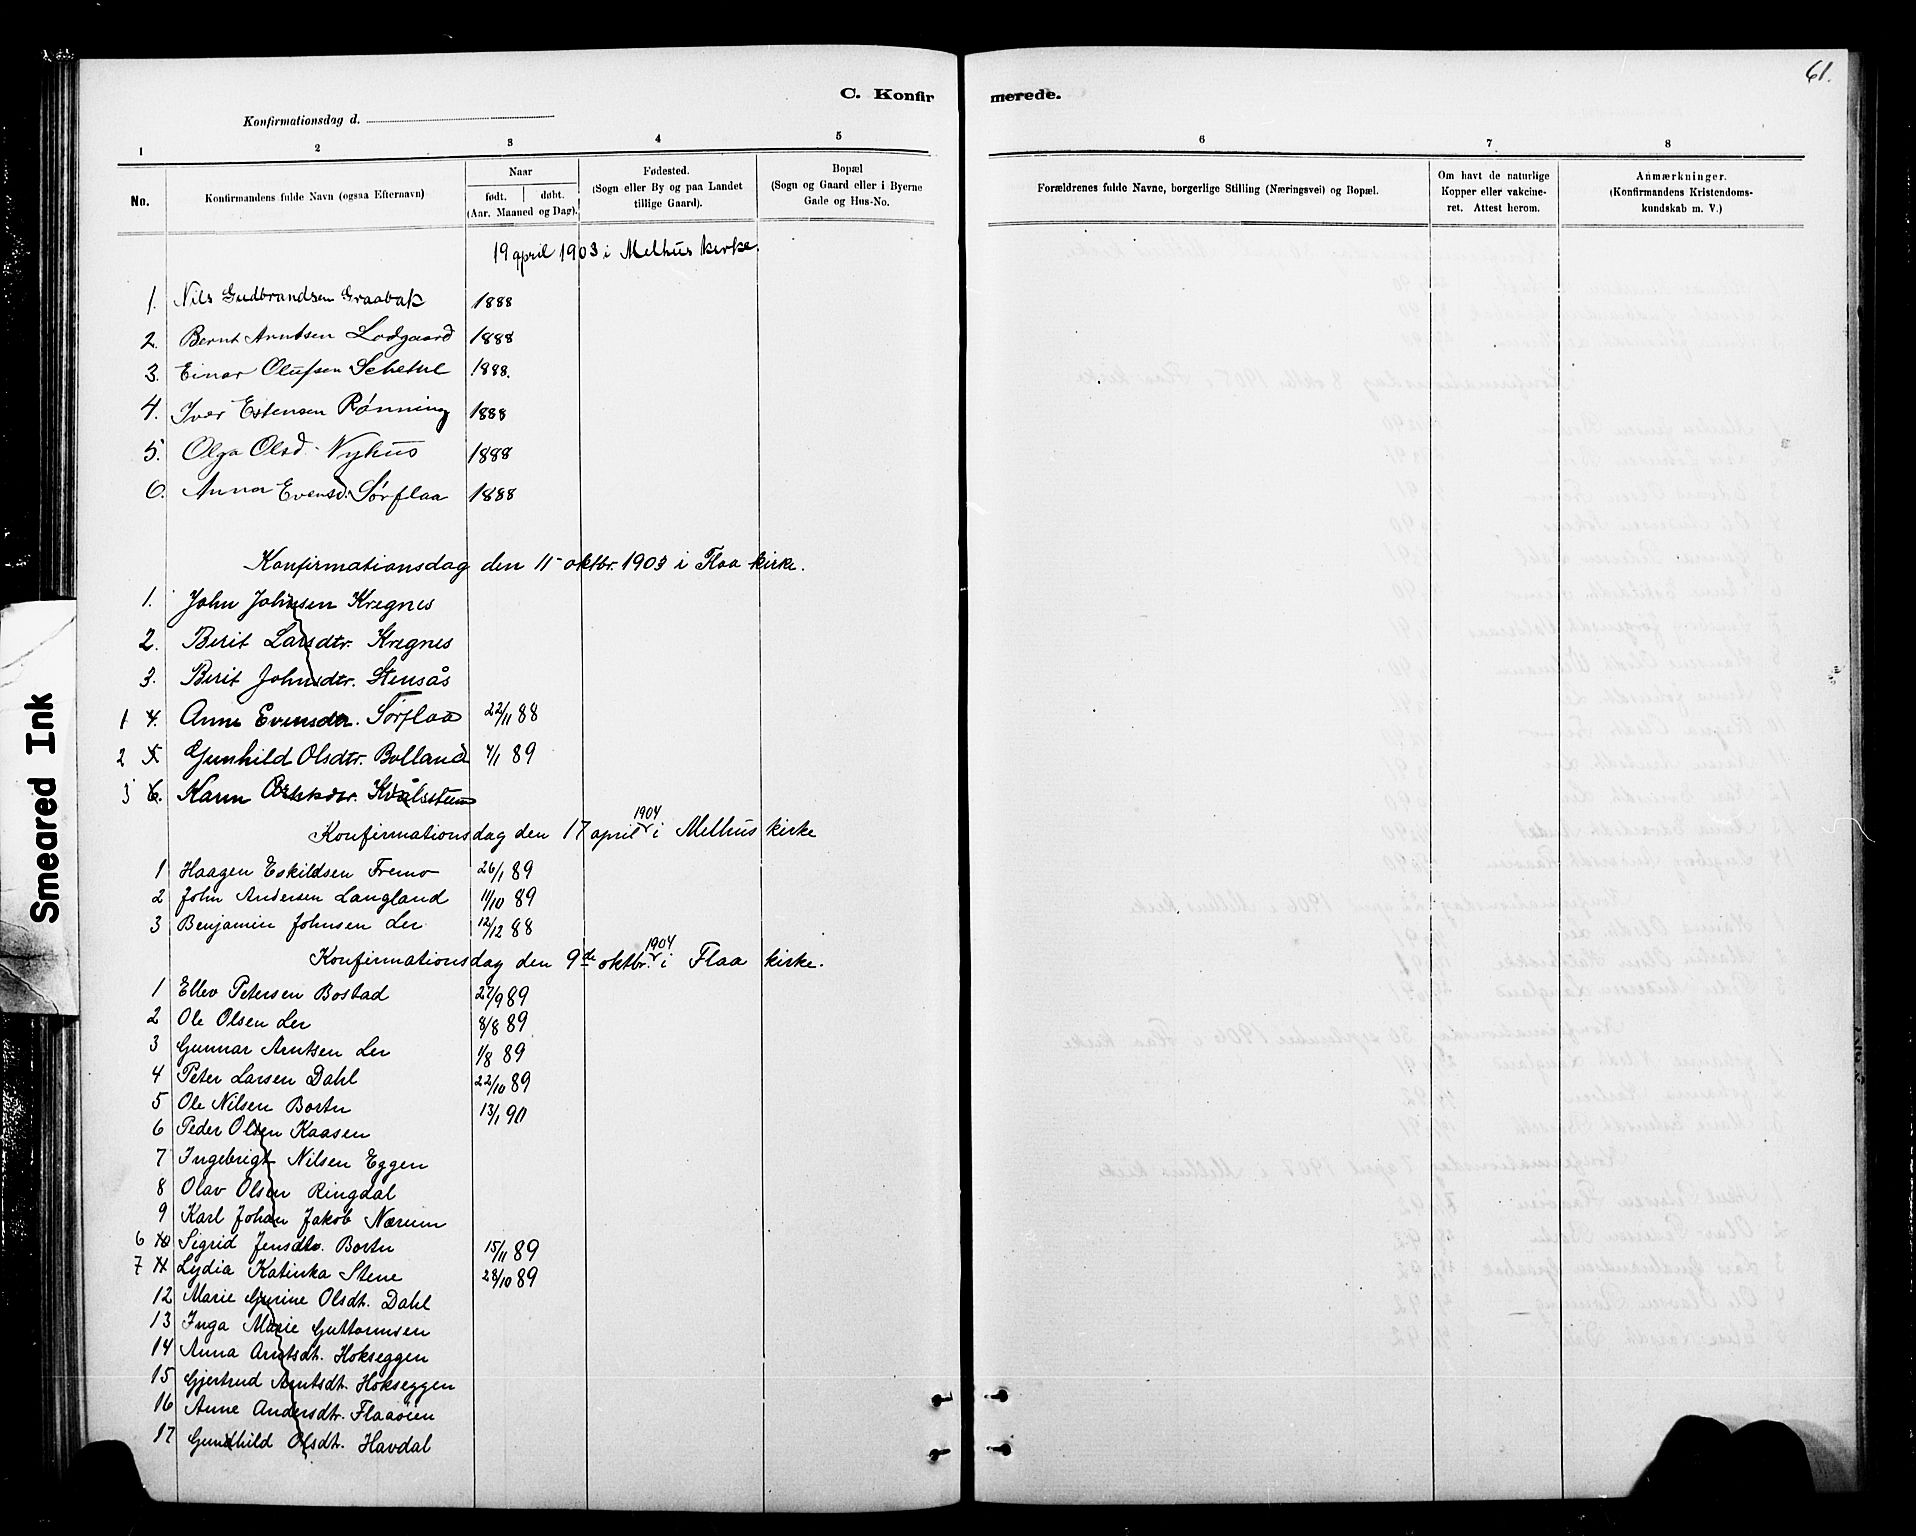 61.
C. Konfirmerede.
Konfirmationsdag d.
1 2 3 4 5 6 7 8
No.
Konfirmandens fulde Navn (ogsaa Efternavn)
Naar
født. døbt.
(Aar. Maaned og Dag).
Fødested.
(Sogn eller By og paa Landet
tillige Gaard).
Bopæl
(Sogn og Gaard eller i Byerne
Gade og Hus-No.
Forældrenes fulde Navne, borgerlige Stilling (Næringsvei) og Bopæl.
Om havt de naturlige
Kopper eller vakcine-
ret. Attest herom.
Anmærkninger.
(Konfirmandens Kristendoms-
kundskab m. V.)
19 april 1903 i Melhus kirke.
1. Nils Gudbrandsen Graabak 1888
2. Bernt Arntsen Lodgaard 1888
3. Einar Olufsen 1888.
4. Iver Estensen Rønning 1888
5. Olga Olsd. Nyhus 1888
6. Anna Evensd. Sørflaa 1888
Konfirmationsdag den 11 oktbr. 1903 i Flaa kirke.
1. John Johnsen Kregnes
2. Berit Larsdtr. Kregnes
3. Berit Johnsdtr. Stensås
1 4. Anne Evensdtr. Sørflaa 22/11 88
2 5 Gunhild Olsdtr. Bolland 4/1 89
3 6. Karen
Konfirmationsdag den 17 april 1904 i Melhus kirke
1 Haagen Eskildsen Fremo 26/1 89
2 John Andersen Langland 11/10 89
3 Benjamin Johnsen Ler 12/12 88
Konfirmationsdag den 9de oktbr. 1904 i Flaa kirke.
1 Ellev Petersen Bostad 27/9 89
2 Ole Olsen Ler 8/8 89
3 Gunnar Arntsen Ler 1/8 89
4 Peter Larsen Dahl 22/10 89
5 Ole Nilsen Borten 13/1 90
6 Peder Olsen Kaasen
7 Ingebrigt Nilsen Eggen
8 Olav Olsen Ringdal
9 Karl Johan Jakob Nærum
6 10 Sigrid Jensdtr. Borten 15/11 89
7 11 Lydia Katinka Stene 28/10 89
12 Marie Gurine Olsdt. Dahl
13 Inga Marie Guttormsen
14 Anna Arntsdt. Hokseggen
15 Gjertrud Arntsdt. Hokseggen
16 Anne Andersdtr. Flaaøien
17 Gunhild Olsdt. Havdal
Smeared Ink